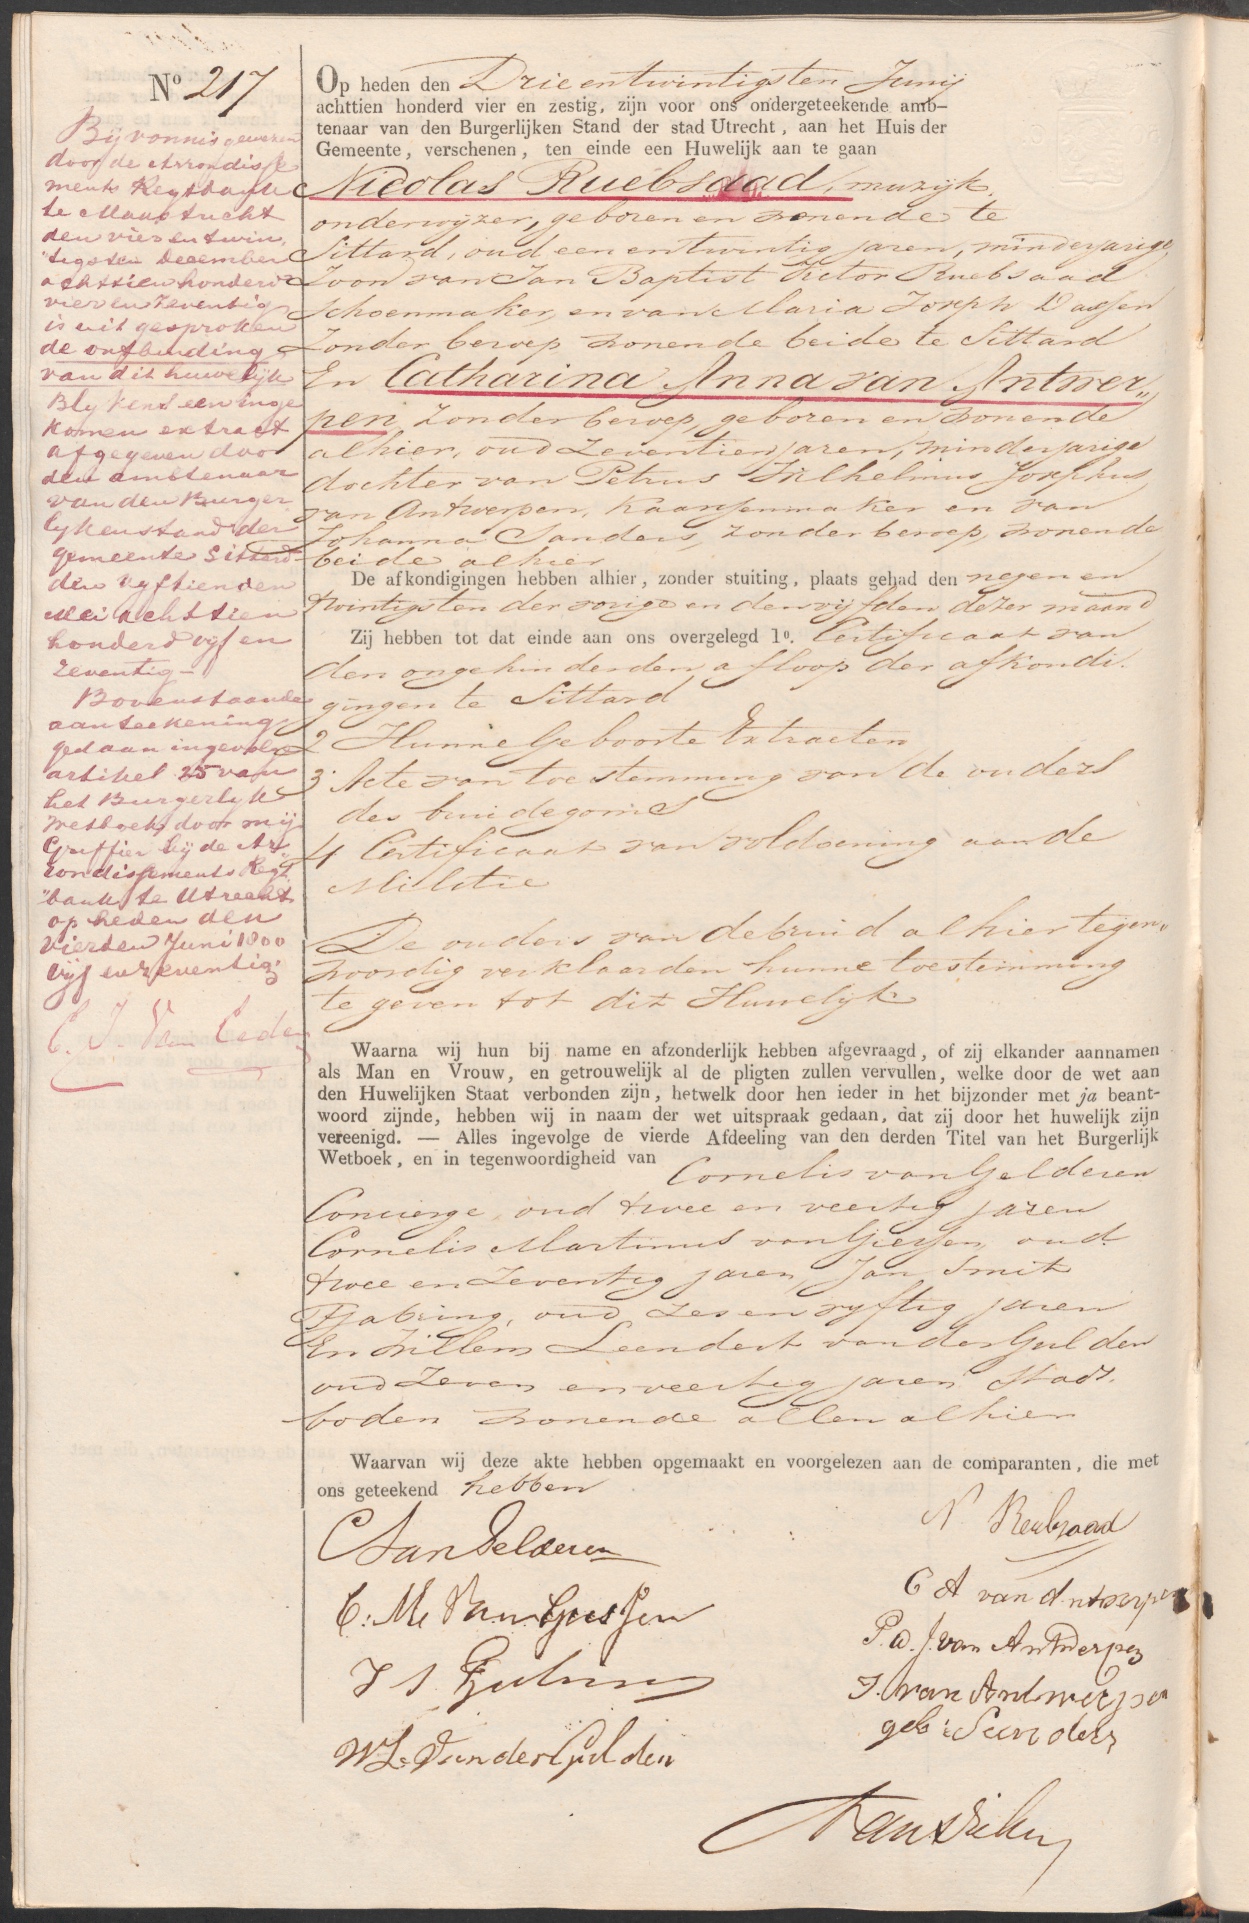 No 217
Bij vonnis gewezen
door de Arrondisse
ments Regtbank
te Maastricht
den vier en twin
tigsten December
achttien honderd
vier en zeventig
is uit gesproken
de ontbinding
van dit huwelijk
Blykens een inge
komen extract
afgegeven door
den ambtenaar
van den Burger
lyken stand der
gemeente Sittard
den vyftienden
Mei achttien
honderd vyf en
zeventig –
Bovenstaande
aanteekening
gedaan ingevolge
artikel 25 van
het Burgerlyk
Wetboek, door mij
Griffier bij de Ar
rondissements Regt
bank te Utrecht
op heden den
vierden Juni 1800
vijf en zeventig.
C. J. Van Eeden
Op heden den Drieentwintigsten Junij
achttien honderd vier en zestig, zijn voor ons ondergeteekende amb-
tenaar van den Burgerlijken Stand der stad Utrecht, aan het Huis der
Gemeente, verschenen, ten einde een Huwelijk aan te gaan
Nicolas Ruebsaad, muzijk
onderwijzer, geboren en wonende te
Sittard, oud een en twintig jaren, minderjarige
Zoon van Jan Baptist Victor Ruebsaad
Schoenmaker, en van Maria Joseph
Zonder beroep wonende beide te Sittard
En Catharina Anna van Antwer„
pen, zonder beroep, geboren en wonende
alhier, oud zeventien jaren, minderjarige
dochter van Petrus Wilhelmus Josephus
van Antwerpen, Kaarsenmaker en van
Johanna Sanders, zonder beroep, wonende
beide alhier
De afkondigingen hebben alhier, zonder stuiting, plaats gehad den negen en
twintigsten der vorige en den vijfden dezer maand
Zij hebben tot dat einde aan ons overgelegd 1o. Certificaat van
den ongehinderden afloop der afkondi.
gingen te Sittard
2 Hunne Geboorte Extracten
3 Acte van toestemming van de ouders
des bruidegoms
4 Certificaat van voldoening aan de
Militie
De ouders van de bruid alhier tegen„
woordig verklaarden hunne toestemming
te geven tot dit Huwelijk
Waarna wij hun bij name en afzonderlijk hebben afgevraagd, of zij elkander aannamen
als Man en Vrouw, en getrouwelijk al de pligten zullen vervullen, welke door de wet aan
den Huwelijken Staat verbonden zijn, hetwelk door hen ieder in het bijzonder met ja beant-
woord zijnde, hebben wij in naam der wet uitspraak gedaan, dat zij door het huwelijk zijn
vereenigd. — Alles ingevolge de vierde Afdeeling van den derden Titel van het Burgerlijk
Wetboek, en in tegenwoordigheid van Cornelis van Gelderen
Concierge oud twee en veertig jaren
Cornelis Martinus van Giessen, oud
twee en zeventig jaren, Jan Smit
Fjabring, oud zes en vyftig jaren
En Willem Leendert van der Gulden
oud zeven en veertig jaren Stads.
boden wonende allen alhier
Waarvan wij deze akte hebben opgemaakt en voorgelezen aan de comparanten, die met
ons geteekend hebben
N Reubsaad
C Van Gelderen
C A van Antwerpen
C: M. Van Giessen
P. W. J. van Antwerpen
J. van Antwerpen
geb: Sanders
W L. Van der Gulden